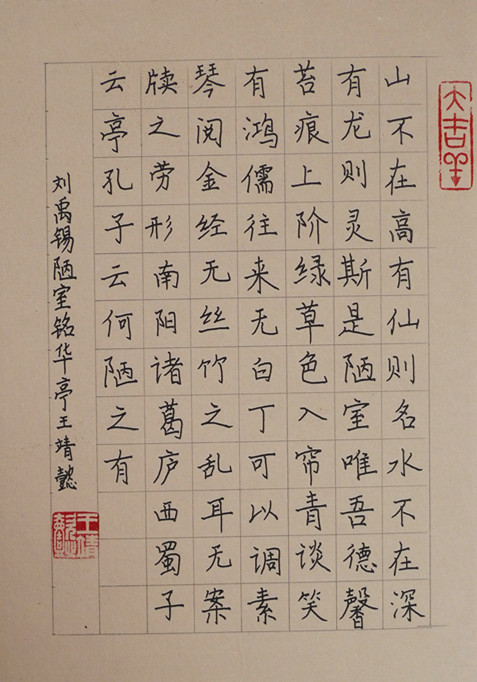 大吉羊
山不在高有仙则名水不在深
有龙则灵斯是陋室唯吾德馨
苔痕上阶绿草色入帘青谈笑
有鸿儒往来无白丁可以调素
琴阅金经无丝竹之乱耳无案
牍之劳形南阳诸葛庐西蜀子
云亭孔子云何陋之有
刘禹锡陋室铭华亭王靖懿
王靖懿